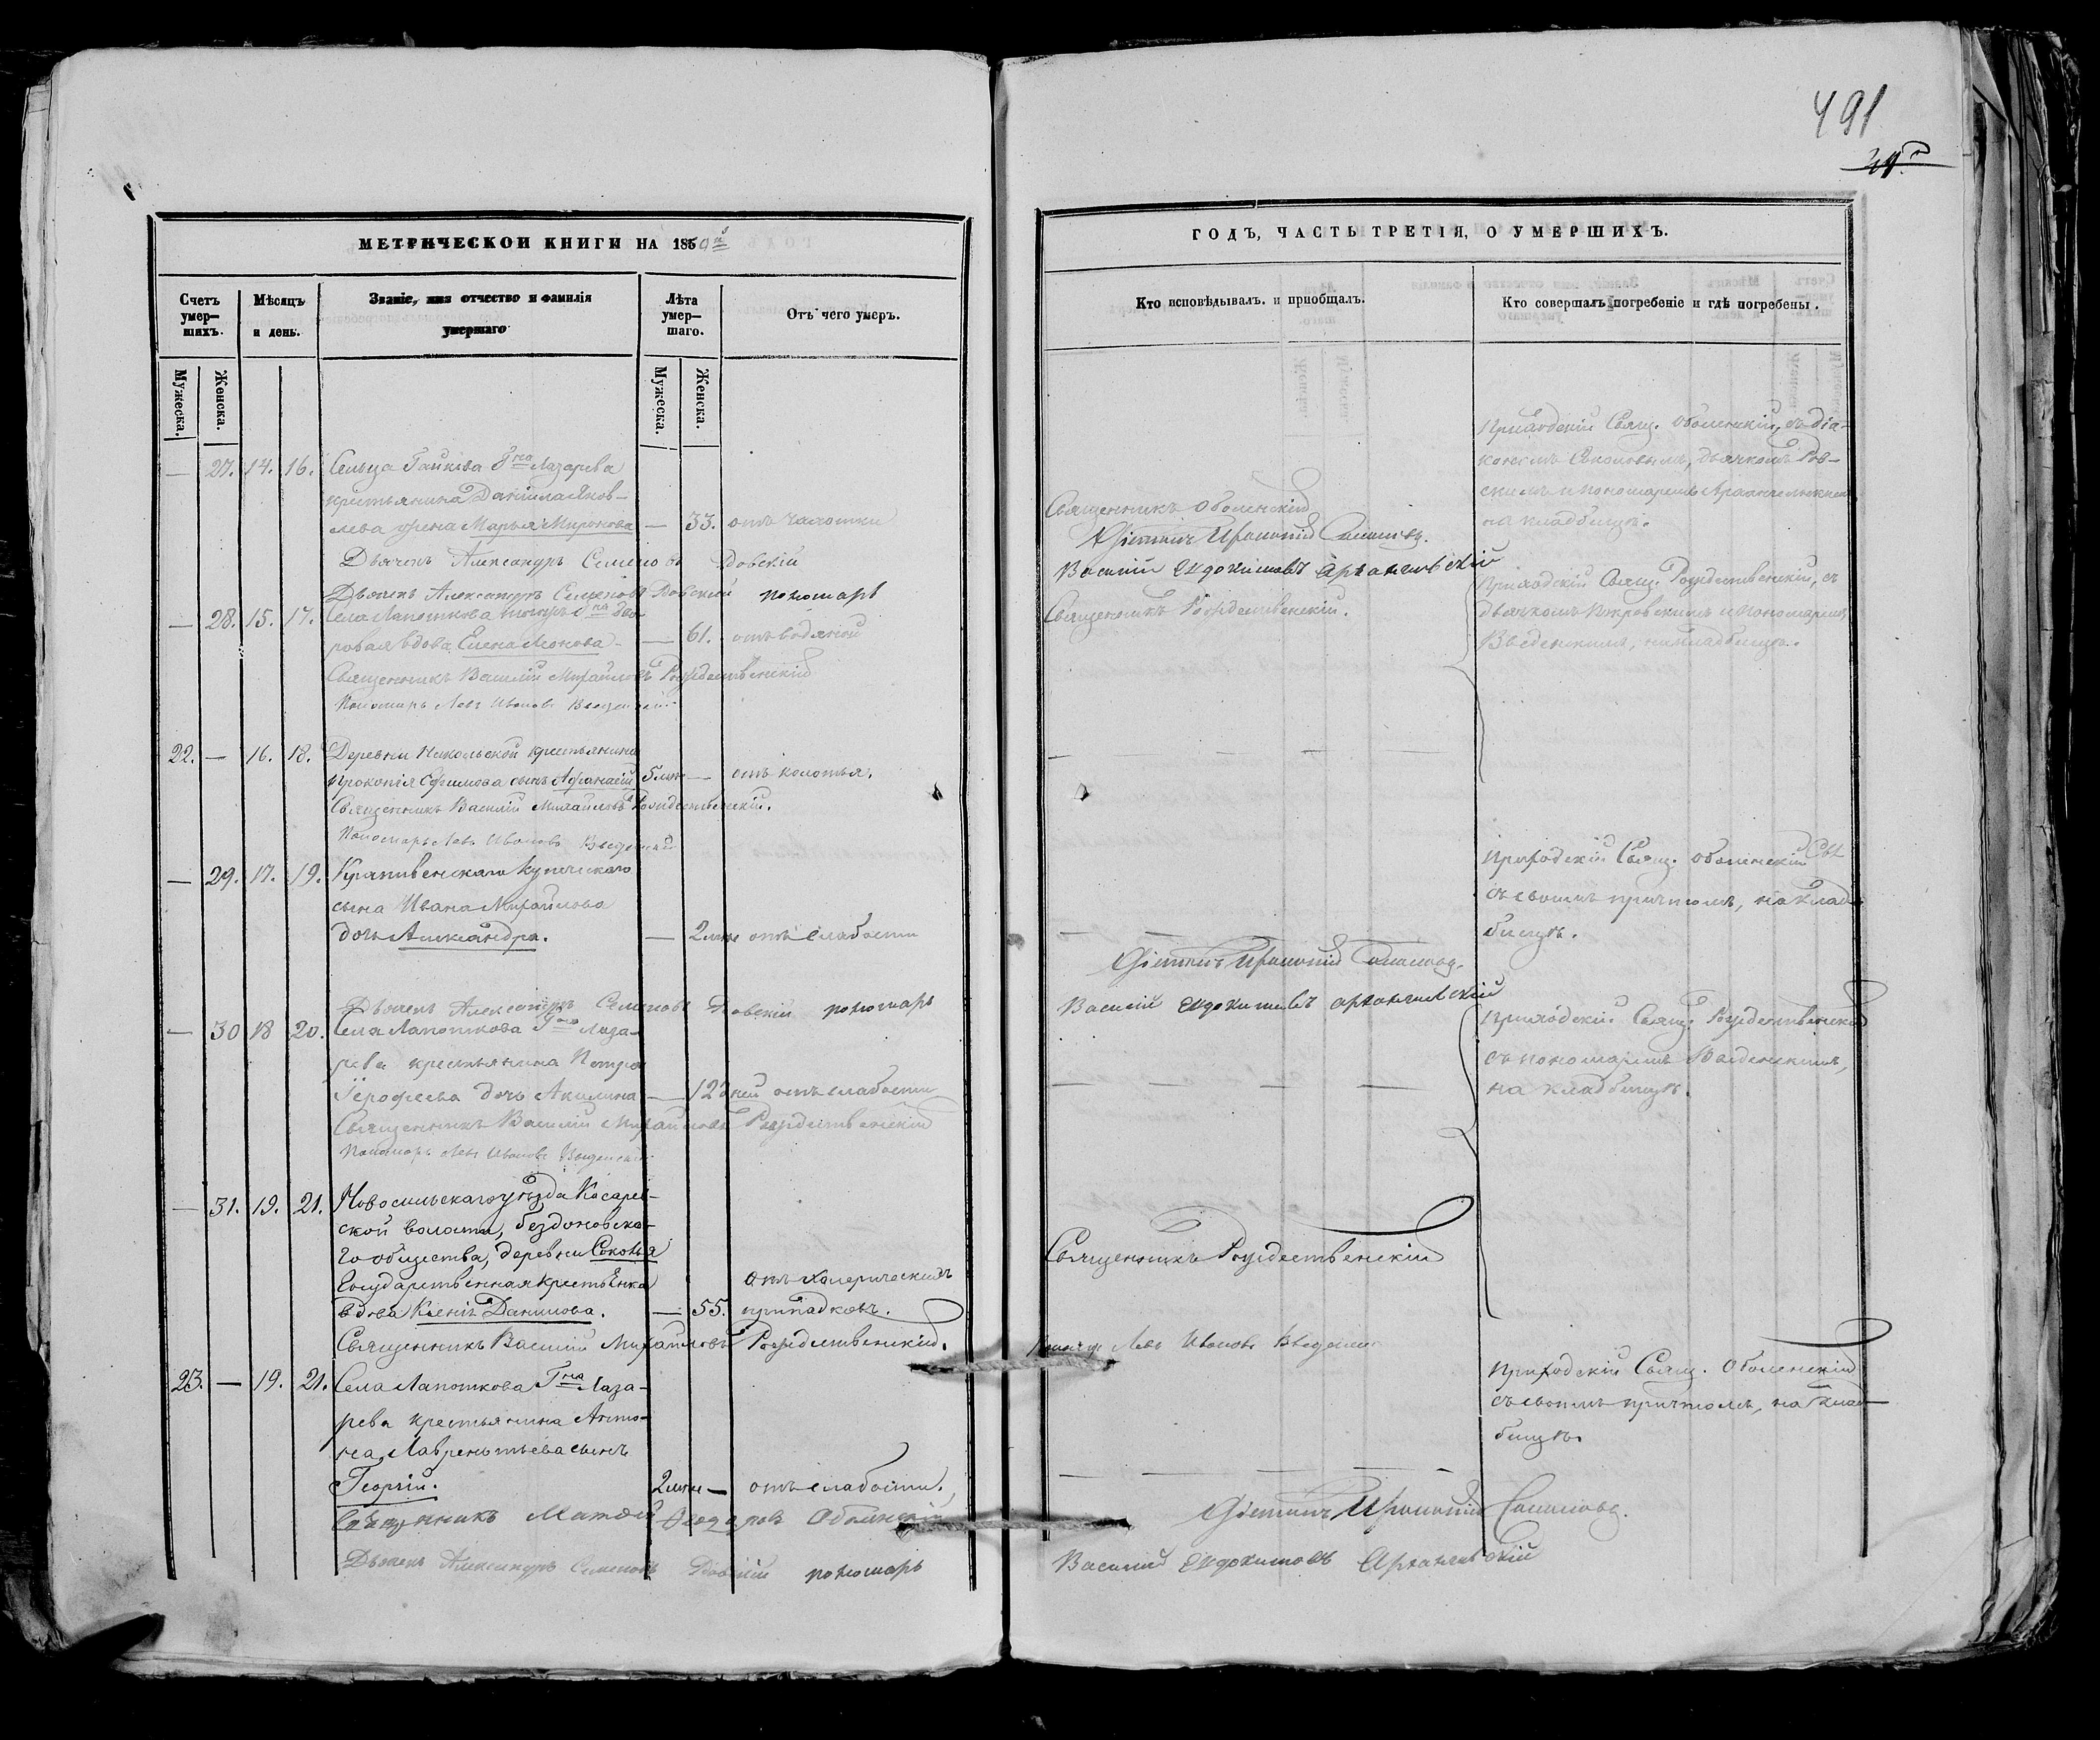 491
МЕТРИЧЕСКОЙ КНИГИ НА 1859й
Счетъ умер-шихъ.
Мѣсяцъ и день.
Званіе, имя отчество и фамилія умершаго
Лѣта умер-шаго.
Отъ чего умеръ.
Мужеска.
Женска.
Мужеска.
Женска.
— 27. 14. 16. Сельца Гайкова Гна Лазарева
крестьянина Даніила Яков-
лева жена Марья Миронова — 33. отъ чахотки
Дьячекъ Александръ Семеновъ
Дьячекъ Александръ Семеновъ пономарь
— 28. 15. 17. Села Лапоткова
ровая вдова Елена Леонова — 61. отъ водяной
Священникъ Василій Михайловъ Рождественскій
Пономарь Левъ Ивановъ Введенскій
22. — 16. 18. Деревни Никольской крестьянина
Прокопія Ефимова сынъ Афанасій 5 лѣтъ — отъ колотья.
Священникъ Василій Михайловъ Рождественскій.
Пономарь Левъ Ивановъ Введенскій
— 29. 17. 19. Крапивенскаго купеческаго
сына Ивана Михайлова
дочь Александра. — 2 отъ слабости
Дьячекъ Александръ Семеновъ пономарь
— 30 18 20. Села Лапоткова Гна Лаза-
рева крестьянина Петра
Іерофеева дочь Акилина — 12 дней отъ слабости
Священникъ Василій Михайловъ Рождественскій
Пономарь Левъ Ивановъ Введенскій
— 31. 19. 21. Новосильскаго уѣзда Косарев-
ской волости,
го общества, деревни
Государственная крестьянка
вдова Ксенія Данилова. — 55. отъ холерическихъ
припадковъ.
Священникъ Василій Михайловъ Рождественскій.
23. — 19. 21. Села Лапоткова Гна Лаза-
рева крестьянина Анто-
на Лаврентьева сынъ
Георгій. 2 — отъ слабости.
Священникъ Матвей Федоровъ Оболенскій
Дьячекъ Александръ Семеновъ пономарь
ГОДЪ, ЧАСТЬ ТРЕТІЯ, О УМЕРШИХЪ.
Кто исповѣдывалъ. и пріобщалъ.
Кто совершалъ погребеніе и гдѣ погребены.
Священникъ Оболенскій
Василій Евдокимовъ Архангельскій
Священникъ Рождественскій.
Василій Евдокимовъ Архангельскій
Священникъ Рождественскій
Левъ Ивановъ Введенскій
Василій Евдокимовъ Архангельскій
Приходскій Свящ. Оболенскій, съ діа-
кономъ Соколовымъ, дьячкомъ
скимъ и пономаремъ Архангельскимъ
на кладбищѣ.
Приходскій Свящ. Рождественскій, съ
дьячкомъ Покровскимъ и пономаремъ
Введенскимъ, на кладбищѣ.
Приходскій Свящ. Оболенскій
съ своимъ причтомъ, на клад-
бищѣ.
Приходскій Свящ. Рождественскій
съ пономаремъ Введенскимъ,
на кладбищѣ.
Приходскій Свящ. Оболенскій
съ своимъ причтомъ, на клад-
бищѣ.